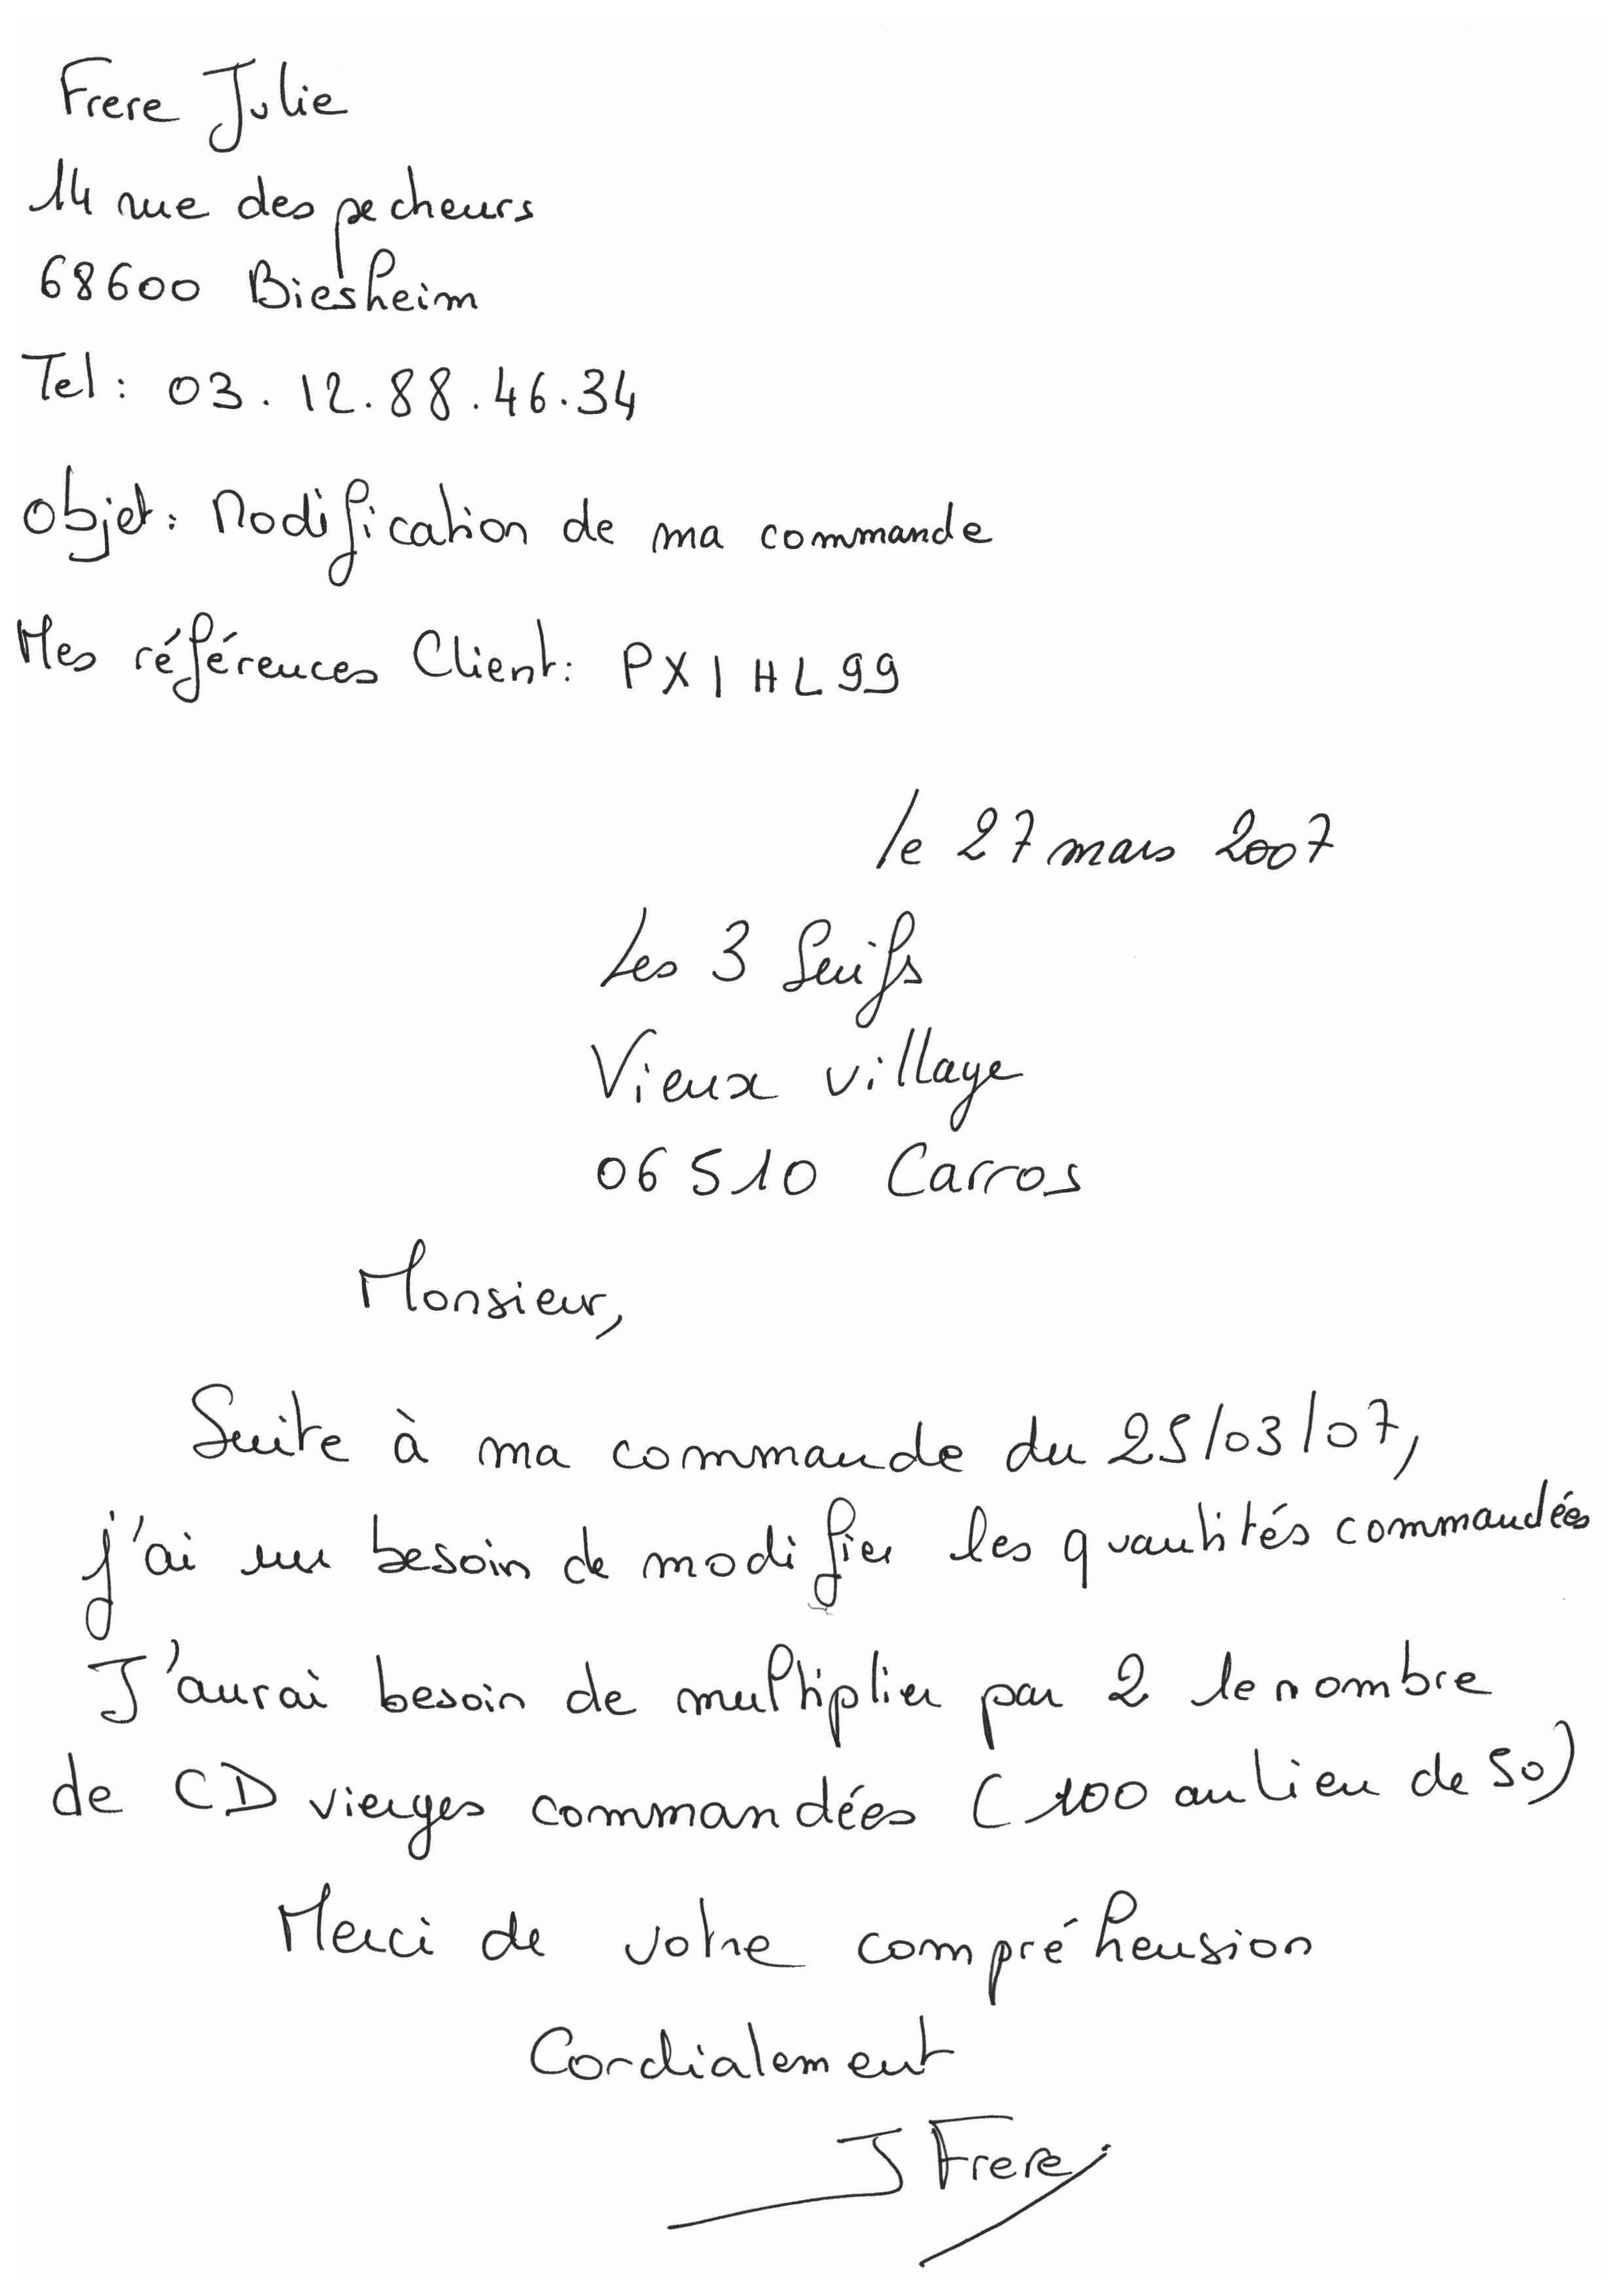 Frere Julie
14 rue des pecheurs
68600 Biesheim
Tel : 03.12.88.46.34
Objet : Modification de ma commande
Mes références Client : PX1HL99
le 27 mars 2007
Les 3 Suifs
Vieux village
06510 Carros
Monsieur,
Suite à ma commande du 25/03/07,
j'ai un besoin de modifier les quantités commandées
J'aurai besoin de multiplier par 2 le nombre
de CD vierges commandées (100 au lieu de 50)
Merci de votre compréhension
Cordialement
J Frere